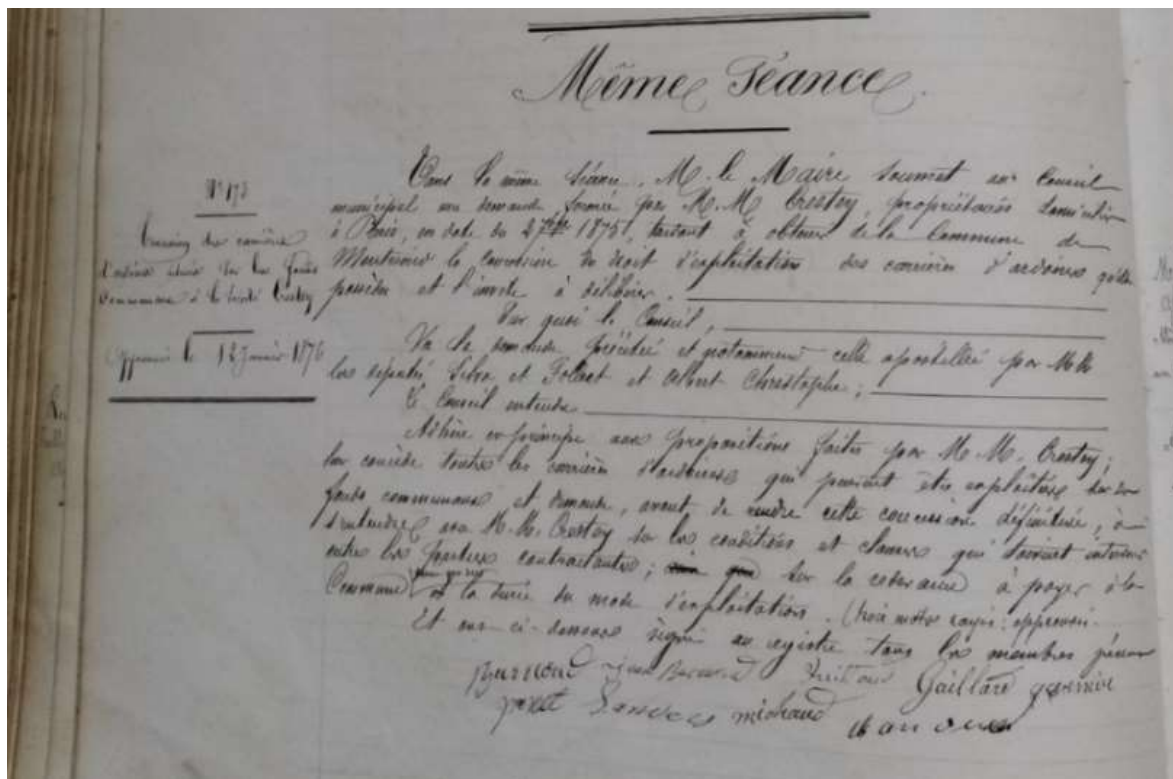 Même Séance.
N° 173
carrières
communaux à la Société Crestey
Approuvé le 12 Janvier 1876
Dans la même séance, M. le Maire soumet au Conseil
municipal une demande formée par M.M. Crestey, propriétaires
à Paris, en date du 27 1875, tendant à obtenir de la Commune de
la concession du droit d'exploitation des carrières d'ardoises qu'elle
possède et l'invite à délibérer.
Sur quoi le Conseil,
Vu la demande précitée et notamment celle apostillée par M.M.
les députés, Silva et Folliet et Albert Christophe;
Le Conseil entendu
Adhère en principe aux propositions faites par M.M. Crestey;
leur concède toutes les carrières d'ardoises qui peuvent être exploitées sur
fonds communaux et demande, avant de rendre cette concession définitive, à
s'entendre avec M.M. Crestey sur les conditions et clauses qui doivent intervenir
entre les parties contractantes; sur la redevance à payer à la
Commune et la durée du mode d'exploitation. (trois mots rayés: approuvé.
Et ont ci-dessous signé au registre tous les membres
Gaillard
michaud